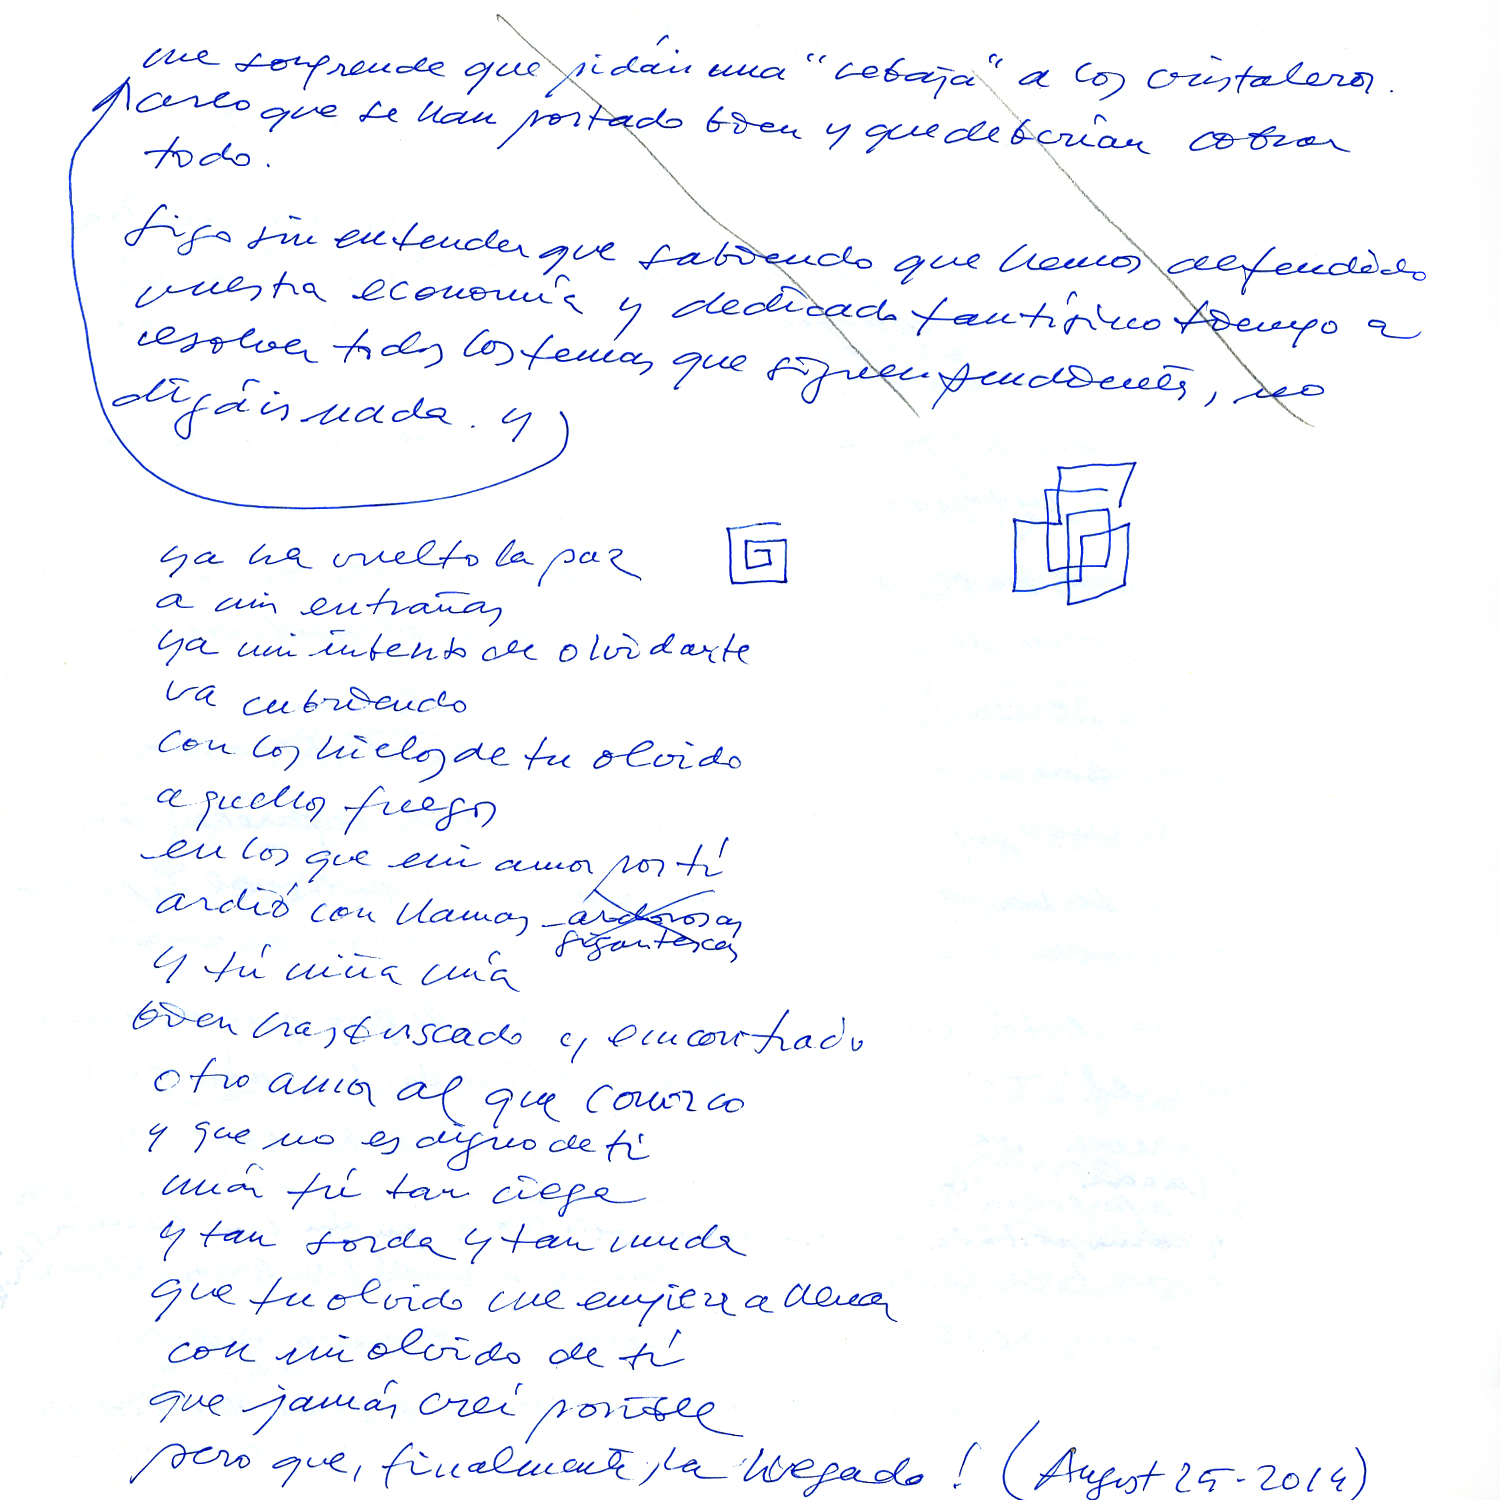 me sorprende que pidáis una "rebaja" a los cristaleros.
creo que se han portado bien y que deberían cobrar
todo.
sigo sin entender que sabiendo que hemos defendido
vuestra economía y dedicado tantísimo tiempo a
resolver todos los temas que siguen pendientes, no
digáis nada. y
ya ha vuelto la paz
a mis entrañas
ya mi intento de olvidarte
va cubriendo
con los hielos de tu olvido
aquellos fuegos
en los que mi amor por tí
ardió con llamas ardorosas
gigantescas
y tú niña mía
bien has buscado y encontrado
otro amor al que conozco
y que no es digno de ti
más tú tan ciega
y tan sorda y tan muda
que tu olvido me empieza a llenar
con mi olvido de tí
que jamás creí posible
pero que, finalmente, ha llegado! (August 25-2014)